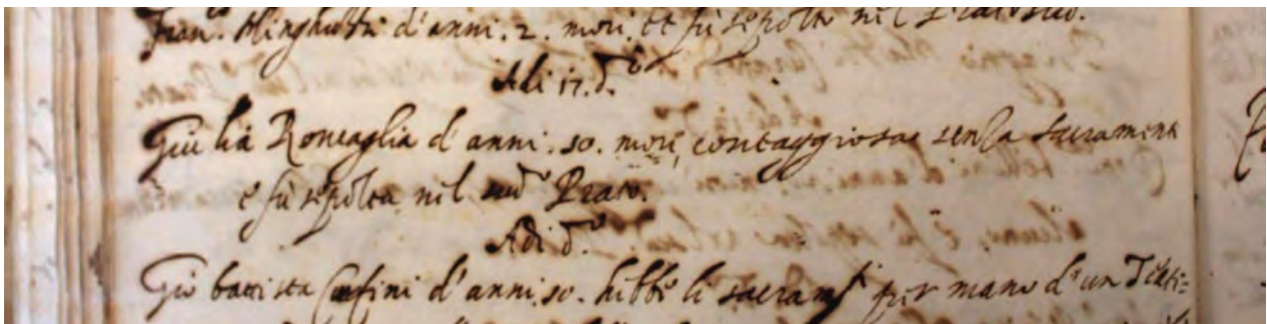 Fran. Minghetti d'anni. 2. morì. et fù sepolto nel Prato sud.
Adi 17. d.º
Giulia Roncaglia d'anni. 50. morì, contaggiosa senza sacramenti
e fù sepolta nel sud.º Prato.
Adi d.º
Gio battista d'anni. 50. hebbe li sacram.ti per mano d'un Teati=